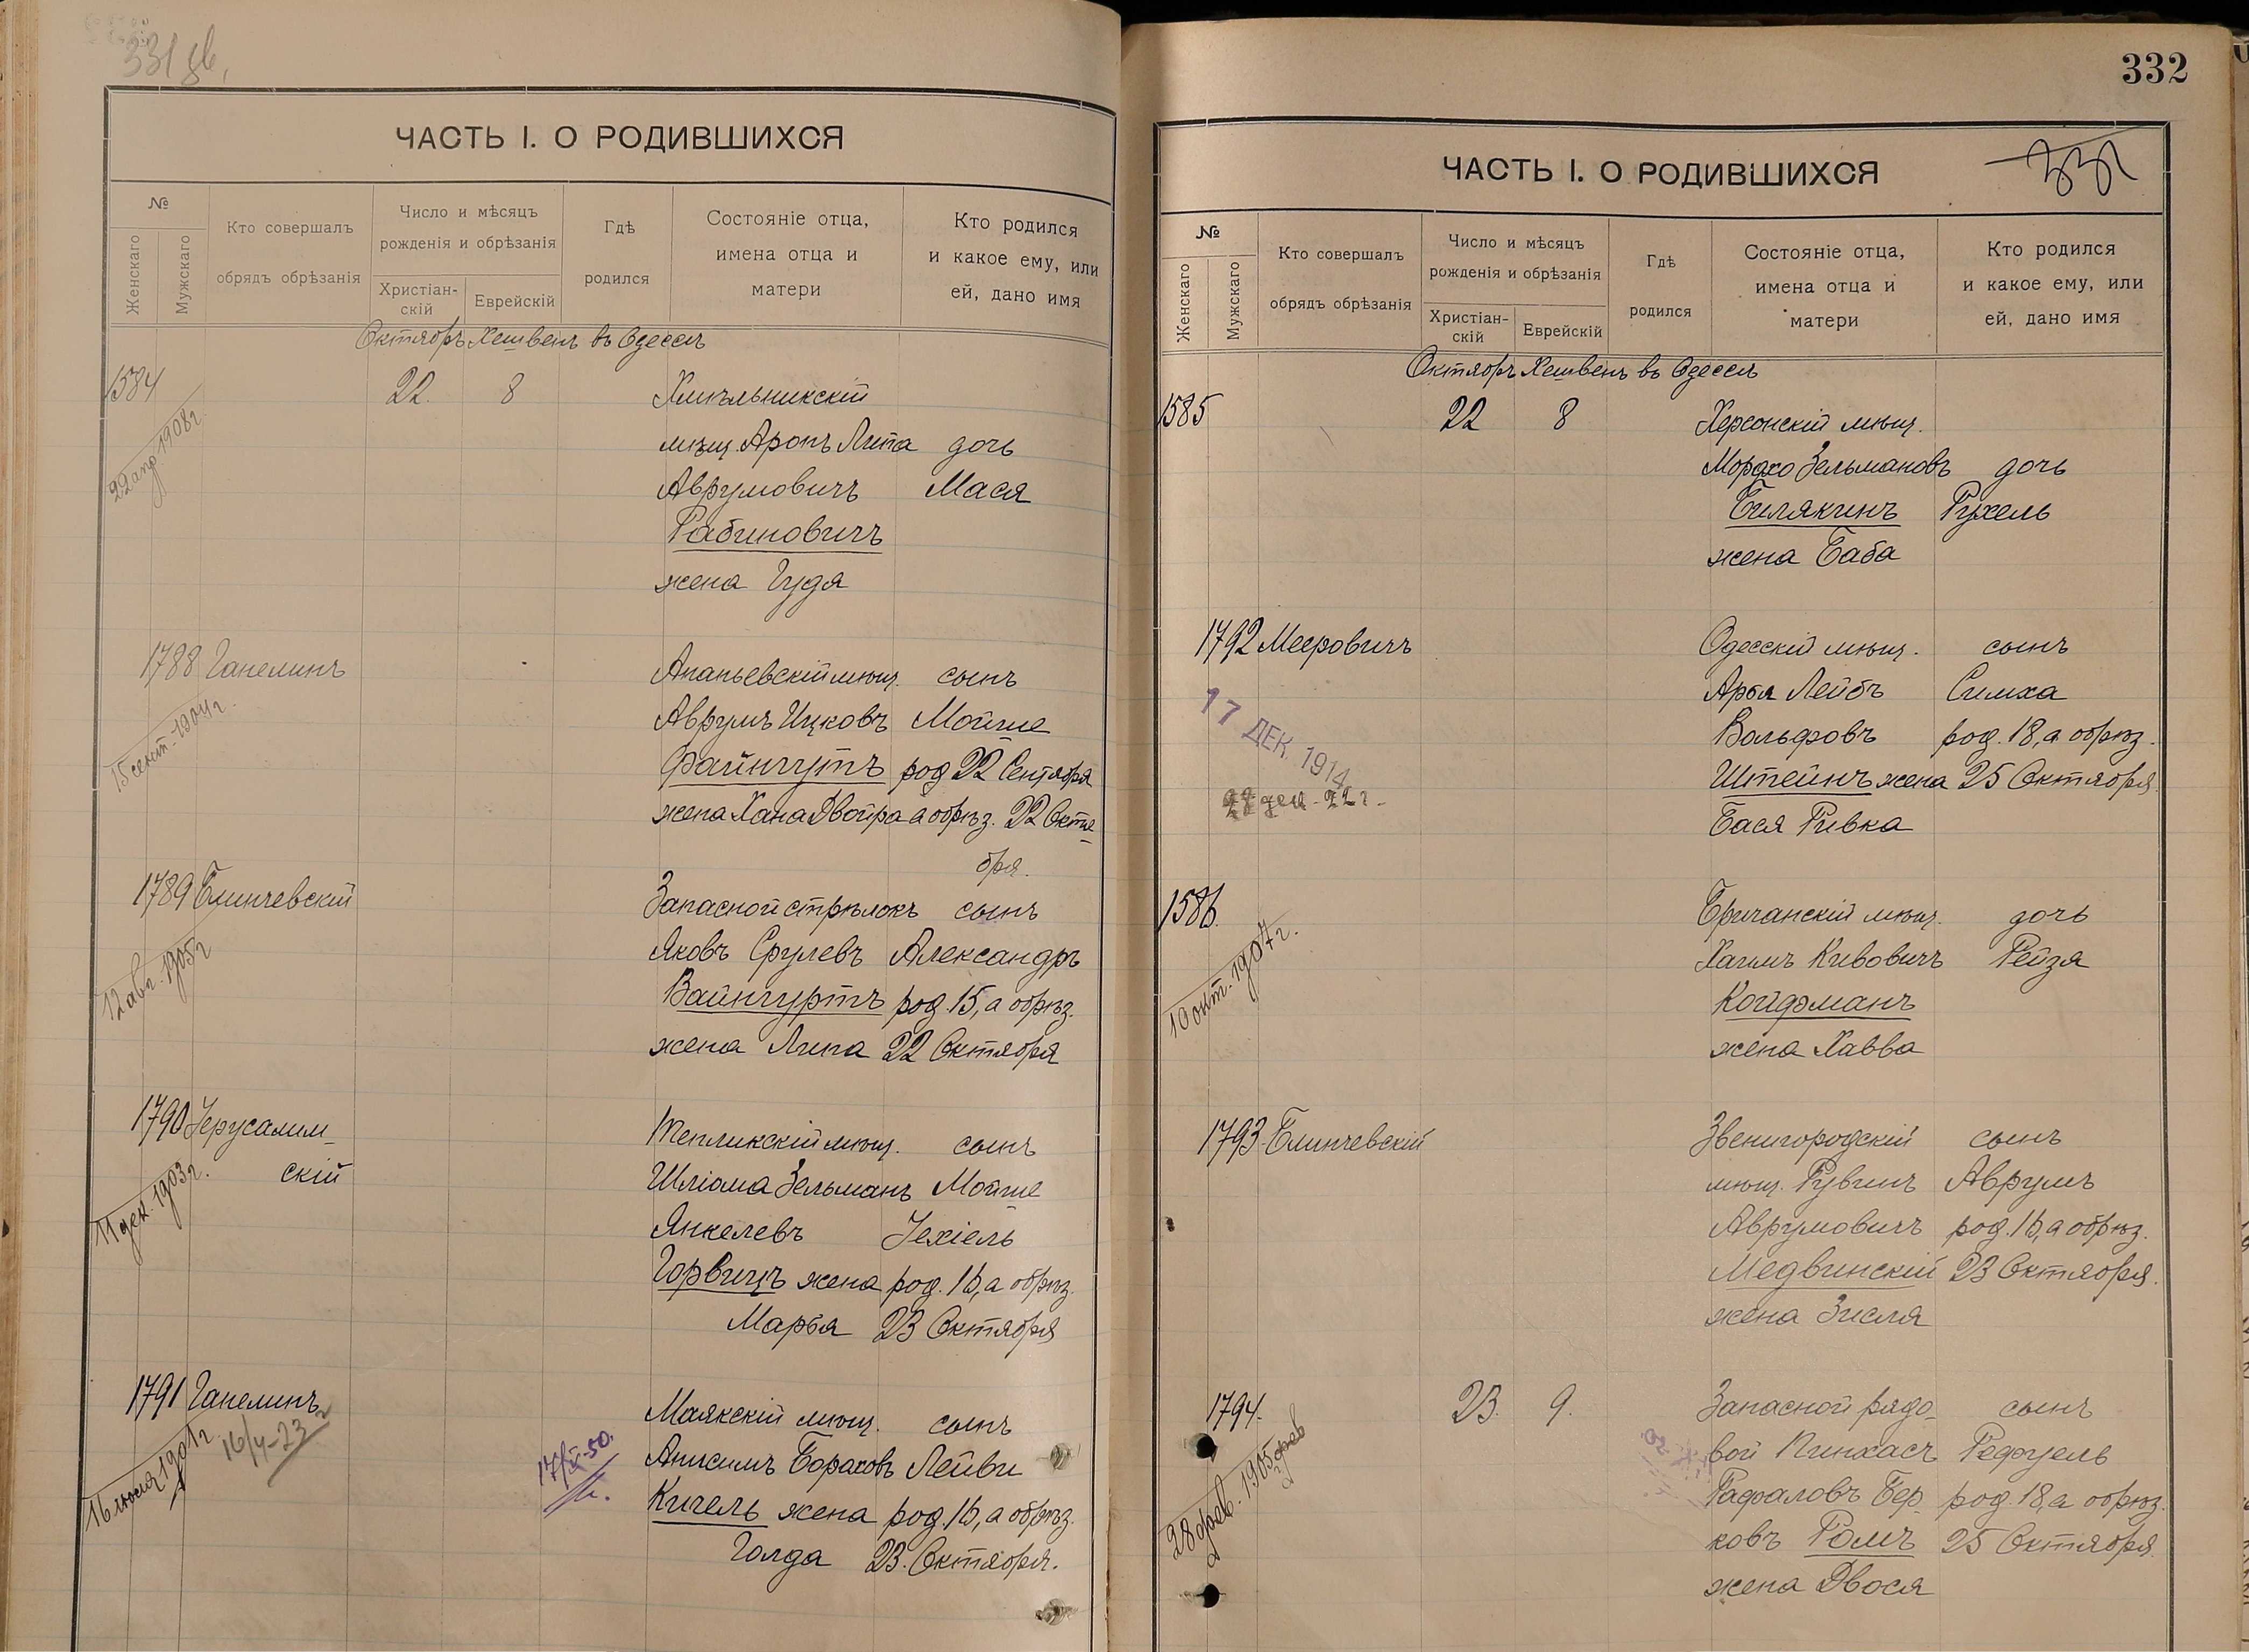 331 об.
ЧАСТЬ I. О РОДИВШИХСЯ
№
Женскаго
Мужскаго
Кто совершалъ
обрядъ обрѣзанія
Число и мѣсяцъ
рожденія и обрѣзанія
Христіан-
скій
Еврейскій
Гдѣ
родился
Состояніе отца,
имена отца и
матери
Кто родился
и какое ему, или
ей, дано имя
Октябрь Хешвенъ въ Одессѣ
1584 22. 8 Хмѣльникскій
мѣщ. Аронъ Липа дочь
Аврумовичъ Мася
Рабиновичъ
жена Гудя
22 апр. 1908 г.
1788 Ганелинъ Ананьевскій мѣщ. сынъ
Аврумъ Ицковъ Мойше
Файнгутъ род 22 Сентября
жена Хана Двойра а обрѣз. 22 Октя-
бря.
15 сент. 1904 г.
1789 Блинчевскій Запасной стрѣлокъ сынъ
Яковъ Срулевъ Александръ
Вайнгуртъ род. 15, а обрѣз.
жена Лиза 22 Октября
12 авг. 1905 г
1790 Іерусалим- Тепликскій мѣщ. сынъ
скій Шліома Зельманъ Мойше
Янкелевъ Іехіель
Горвицъ жена род. 16, а обрѣз.
Марья 23 Октября
11 дек. 1903 г.
1791 Ганелинъ Маякскій мѣщ. сынъ
Анисимъ Бораховъ Лейви
Кигель жена род. 16, а обрѣз.
Голда 23. Октября.
16 іюля 1901 г.
16/4-23
17/X-50.
332
ЧАСТЬ I. О РОДИВШИХСЯ
№
Женскаго
Мужскаго
Кто совершалъ
обрядъ обрѣзанія
Число и мѣсяцъ
рожденія и обрѣзанія
Христіан-
скій
Еврейскій
Гдѣ
родился
Состояніе отца,
имена отца и
матери
Кто родился
и какое ему, или
ей, дано имя
Октябрь Хешвенъ въ Одессѣ
1585 22 8 Херсонскій мѣщ.
Мордко Зельмановъ дочь
Билякинъ Рухель
жена Баба
1792 Мееровичъ Одесскій мѣщ. сынъ
Арья Лейбъ Симха
Вольфовъ род. 18, а обрѣз.
Штейнъ жена 25 Октября.
Бася Ривка
17 ДЕК. 1914
1586. Бричанскій мѣщ. дочь
Хаимъ Кивовичъ Рейзя
Койфманъ
жена Хавва
10 окт. 1907 г.
1793. Блинчевскій Звенигородскій сынъ
мѣщ. Рувинъ Аврумъ
Аврумовичъ род. 16, а обрѣз.
Медвинскій 23 Октября.
жена Зисля
1794. 23. 9. Запасной рядо- сынъ
вой Пинхасъ Рефуель
Рафаловъ Бер- род. 18, а обрѣз.
ковъ Ромъ 25 Октября.
жена Двося
28 фев. 1905